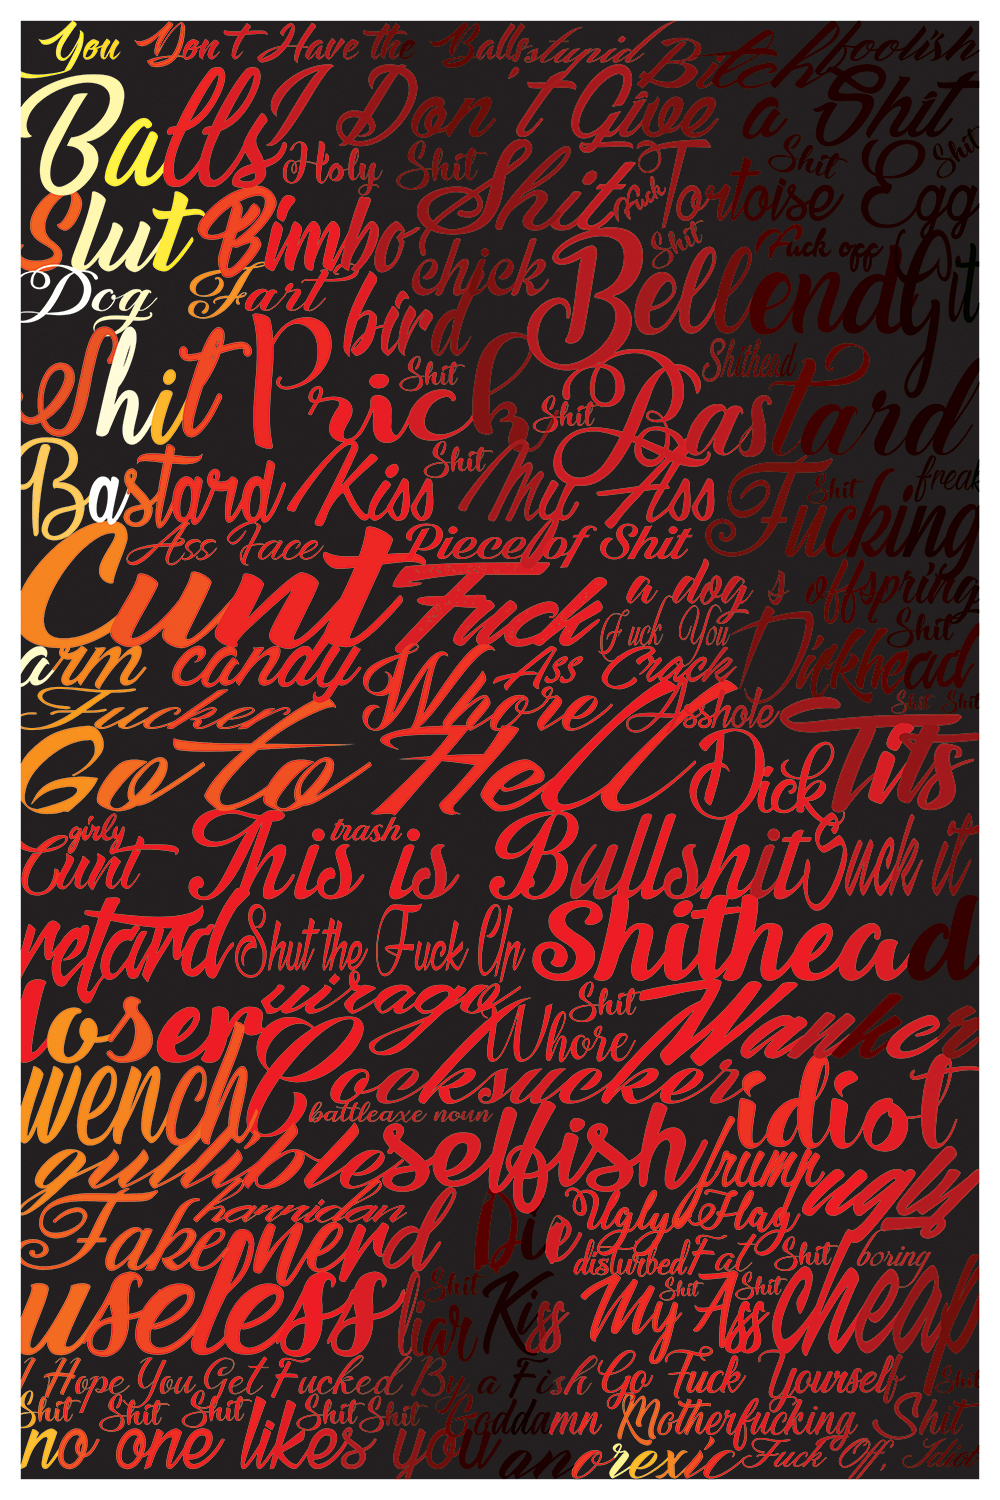 You Don't Have the Balls stupid Bitch foolish
Balls I Don't Give a Shit
Holy Shit Shit Fuck Tortoise Shit Egg Shit
Slut Bimbo chick Shit Bellend Fuck off Git
Dog Fart bird
Shit Prick Shit Shit Bastard Shithead
Bastard Kiss Shit My Ass Fucking Shit freak
Ass Face Piece of Shit
Cunt Fuck a dog s offspring
Fuck You Dickhead Shit
arm candy Whore Ass Crack
Fucker Asshole Shit Shit
Go to Hell Dick Tits
girly trash
Cunt This is Bullshit Suck it
retard Shut the Fuck Up Shithead
loser virago Whore Shit Wanker
wench Cocksucker idiot
battleaxe noun
gullible selfish frump ugly
harridan
Fake nerd Die Ugly Hag
disturbed Fat Shit boring
useless liar Shit Kiss My Shit Ass Shit cheap
I Hope You Get Fucked By a Fish Go Fuck Yourself Shit
Shit Shit Shit Shit Shit Goddamn Motherfucking Shit
no one likes you anorexic Fuck Off, Idiot